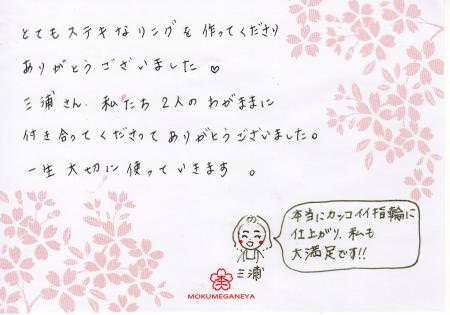 とてもステキなリングを作ってくださり
ありがとうございました♡
三浦さん、私たち2人のわがままに
付き合ってくださってありがとうございました。
一生大切に使っていきます。
本当にカッコイイ指輪に
仕上がり、私も
大満足です!!
三浦
MOKUMEGANEYA